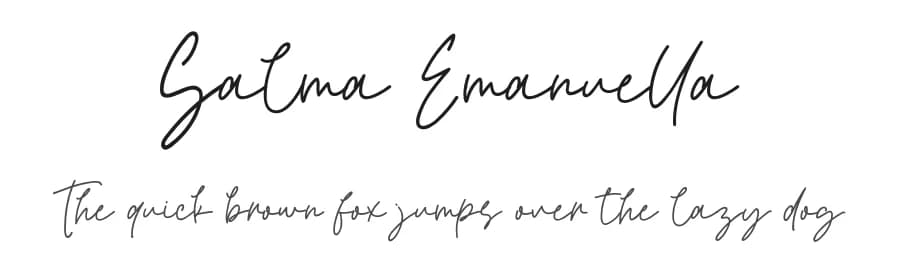 Salma Emanuella
The quick brown fox jumps over the lazy dog